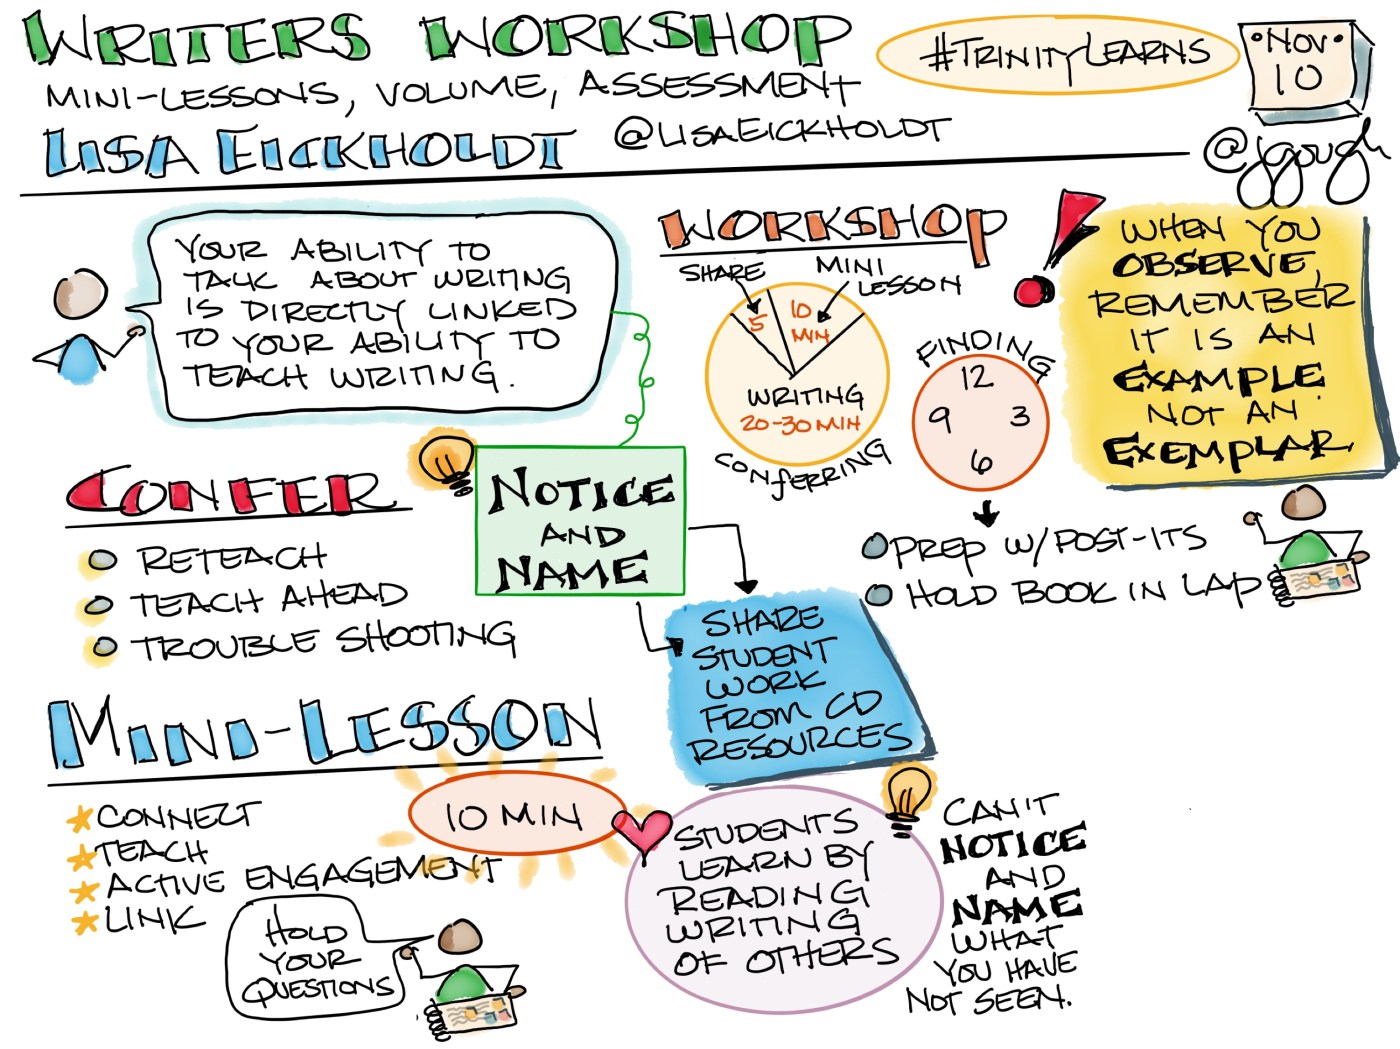 WRITERS WORKSHOP
MINI-LESSONS, VOLUME, ASSESSMENT
LISA EICKHOLDT @LISAEICKHOLDT
#TRINITYLEARNS
NOV
10
@jgough
YOUR ABILITY TO
TALK ABOUT WRITING
IS DIRECTLY LINKED
TO YOUR ABILITY TO
TEACH WRITING.
WORKSHOP
SHARE
MINI
LESSON
5
10
MIN
WRITING
20-30 MIN
CONFERRING
FINDING
12
9 3
6
PREP W/POST-ITS
HOLD BOOK IN LAP
WHEN YOU
OBSERVE,
REMEMBER
IT IS AN
EXAMPLE
NOT AN
EXEMPLAR
CONFER
RETEACH
TEACH AHEAD
TROUBLE SHOOTING
NOTICE
AND
NAME
SHARE
STUDENT
WORK
FROM CD
RESOURCES
MINI-LESSON
10 MIN
CONNECT
TEACH
ACTIVE ENGAGEMENT
LINK
HOLD
YOUR
QUESTIONS
STUDENTS
LEARN BY
READING
WRITING
OF OTHERS
CAN'T
NOTICE
AND
NAME
WHAT
YOU HAVE
NOT SEEN.